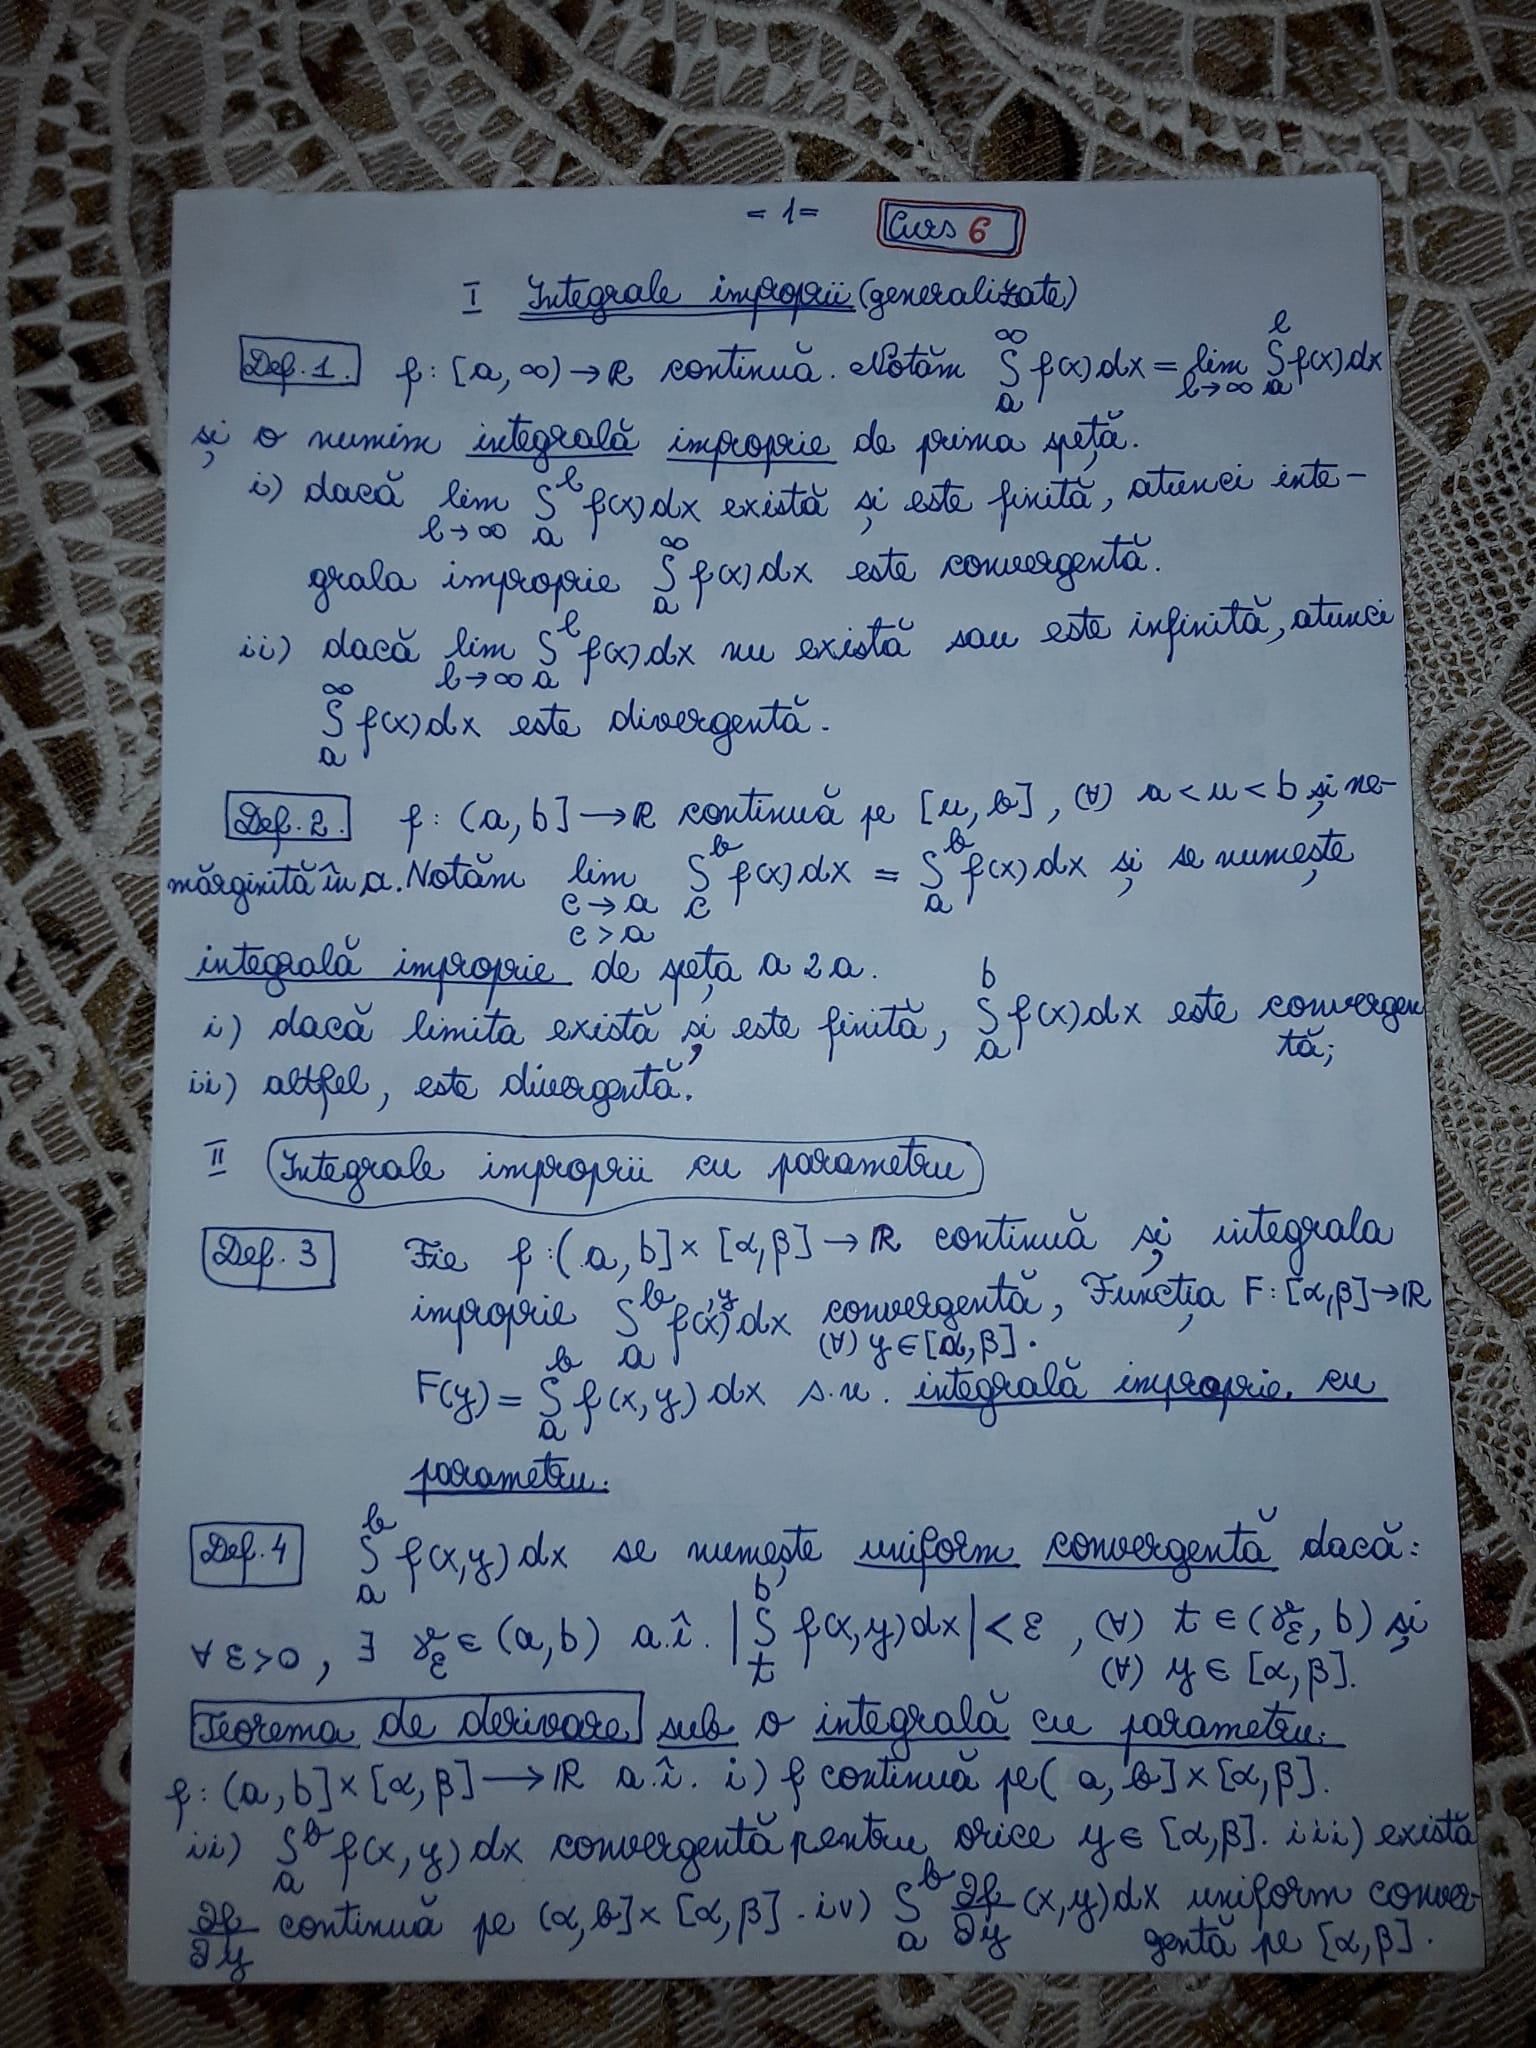 = 1 =
Curs 6
I Integrale improprii (generalizate)
Def. 1. f: [a, ∞) → R continuă. Notăm ∫_a^∞ f(x)dx = lim_{l→∞} ∫_a^l f(x)dx
și o numim integrală improprie de prima speță.
i) dacă lim_{l→∞} ∫_a^l f(x)dx există și este finită, atunci inte-
grala improprie ∫_a^∞ f(x)dx este convergentă.
ii) dacă lim_{l→∞} ∫_a^l f(x)dx nu există sau este infinită, atunci
∫_a^∞ f(x)dx este divergentă.
Def. 2. f: (a, b] → R continuă pe [u, b], (∀) a < u < b și ne-
mărginită în a. Notăm lim_{c→a, c>a} ∫_c^b f(x)dx = ∫_a^b f(x)dx și se numește
integrală improprie de speța a 2 a.
i) dacă limita există și este finită, ∫_a^b f(x)dx este convergen
tă;
ii) altfel, este divergentă.
II Integrale improprii cu parametru
Def. 3 Fie f: (a, b] × [α, β] → R continuă și integrala
improprie ∫_a^b f(x,y)dx convergentă, (∀) y ∈ [α, β]. Funcția F: [α, β] → R
F(y) = ∫_a^b f(x, y) dx s.n. integrală improprie cu
parametru.
Def. 4 ∫_a^b f(x,y)dx se numește uniform convergentă dacă:
∀ ε>0, ∃ γ_ε ∈ (a, b) a.î. |∫_t^b f(x, y)dx| < ε, (∀) t ∈ (γ_ε, b) și
(∀) y ∈ [α, β].
Teorema de derivare sub o integrală cu parametru.
f: (a, b] × [α, β] → R a.î. i) f continuă pe (a, b] × [α, β].
ii) ∫_a^b f(x, y) dx convergentă pentru orice y ∈ [α, β]. iii) există
∂f/∂y continuă pe (a, b] × [α, β]. iv) ∫_a^b ∂f/∂y (x, y)dx uniform conver-
gentă pe [α, β].